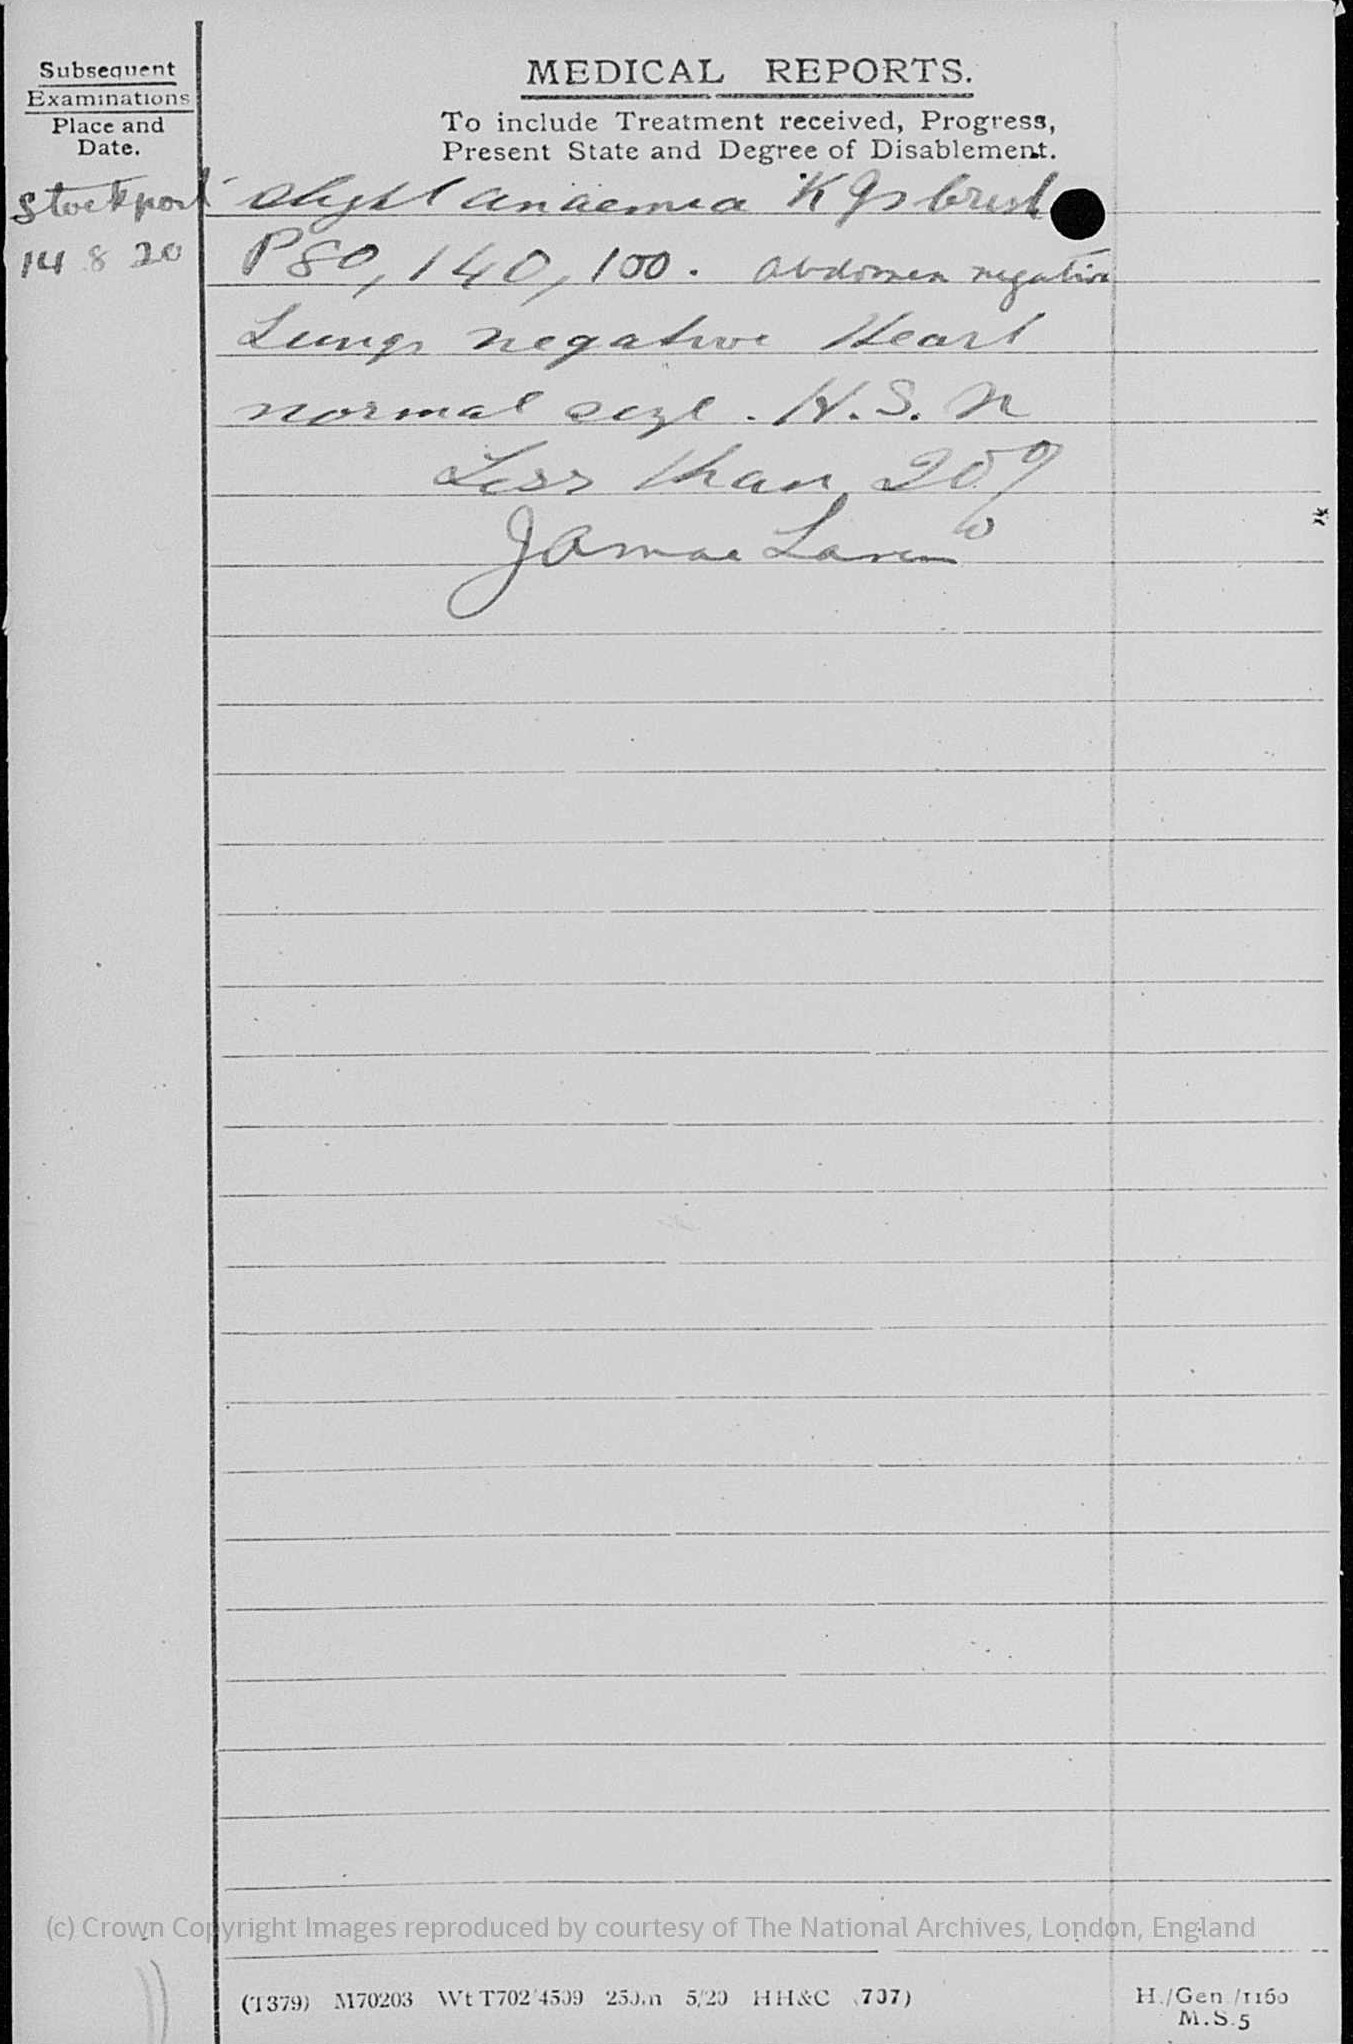 Subsequent
Examinations
Place and
Date.
MEDICAL REPORTS.
To include Treatment received, Progress,
Present State and Degree of Disablement.
Stockport
14 8 20
Slight anaemia K Js brisk
P 80, 140, 100. Abdomen negative
Lungs negative Heart
normal size. H.S. N
Less than 20%
(c) Crown Copyright Images reproduced by courtesy of The National Archives, London, England
(T379) M70203 Wt T702 4509 250m 5/20 HH&C 737)
H./Gen./1160
M.S.5